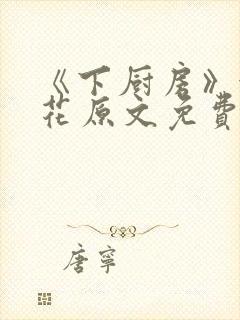 《下厨房》
花原文免費
唐寧